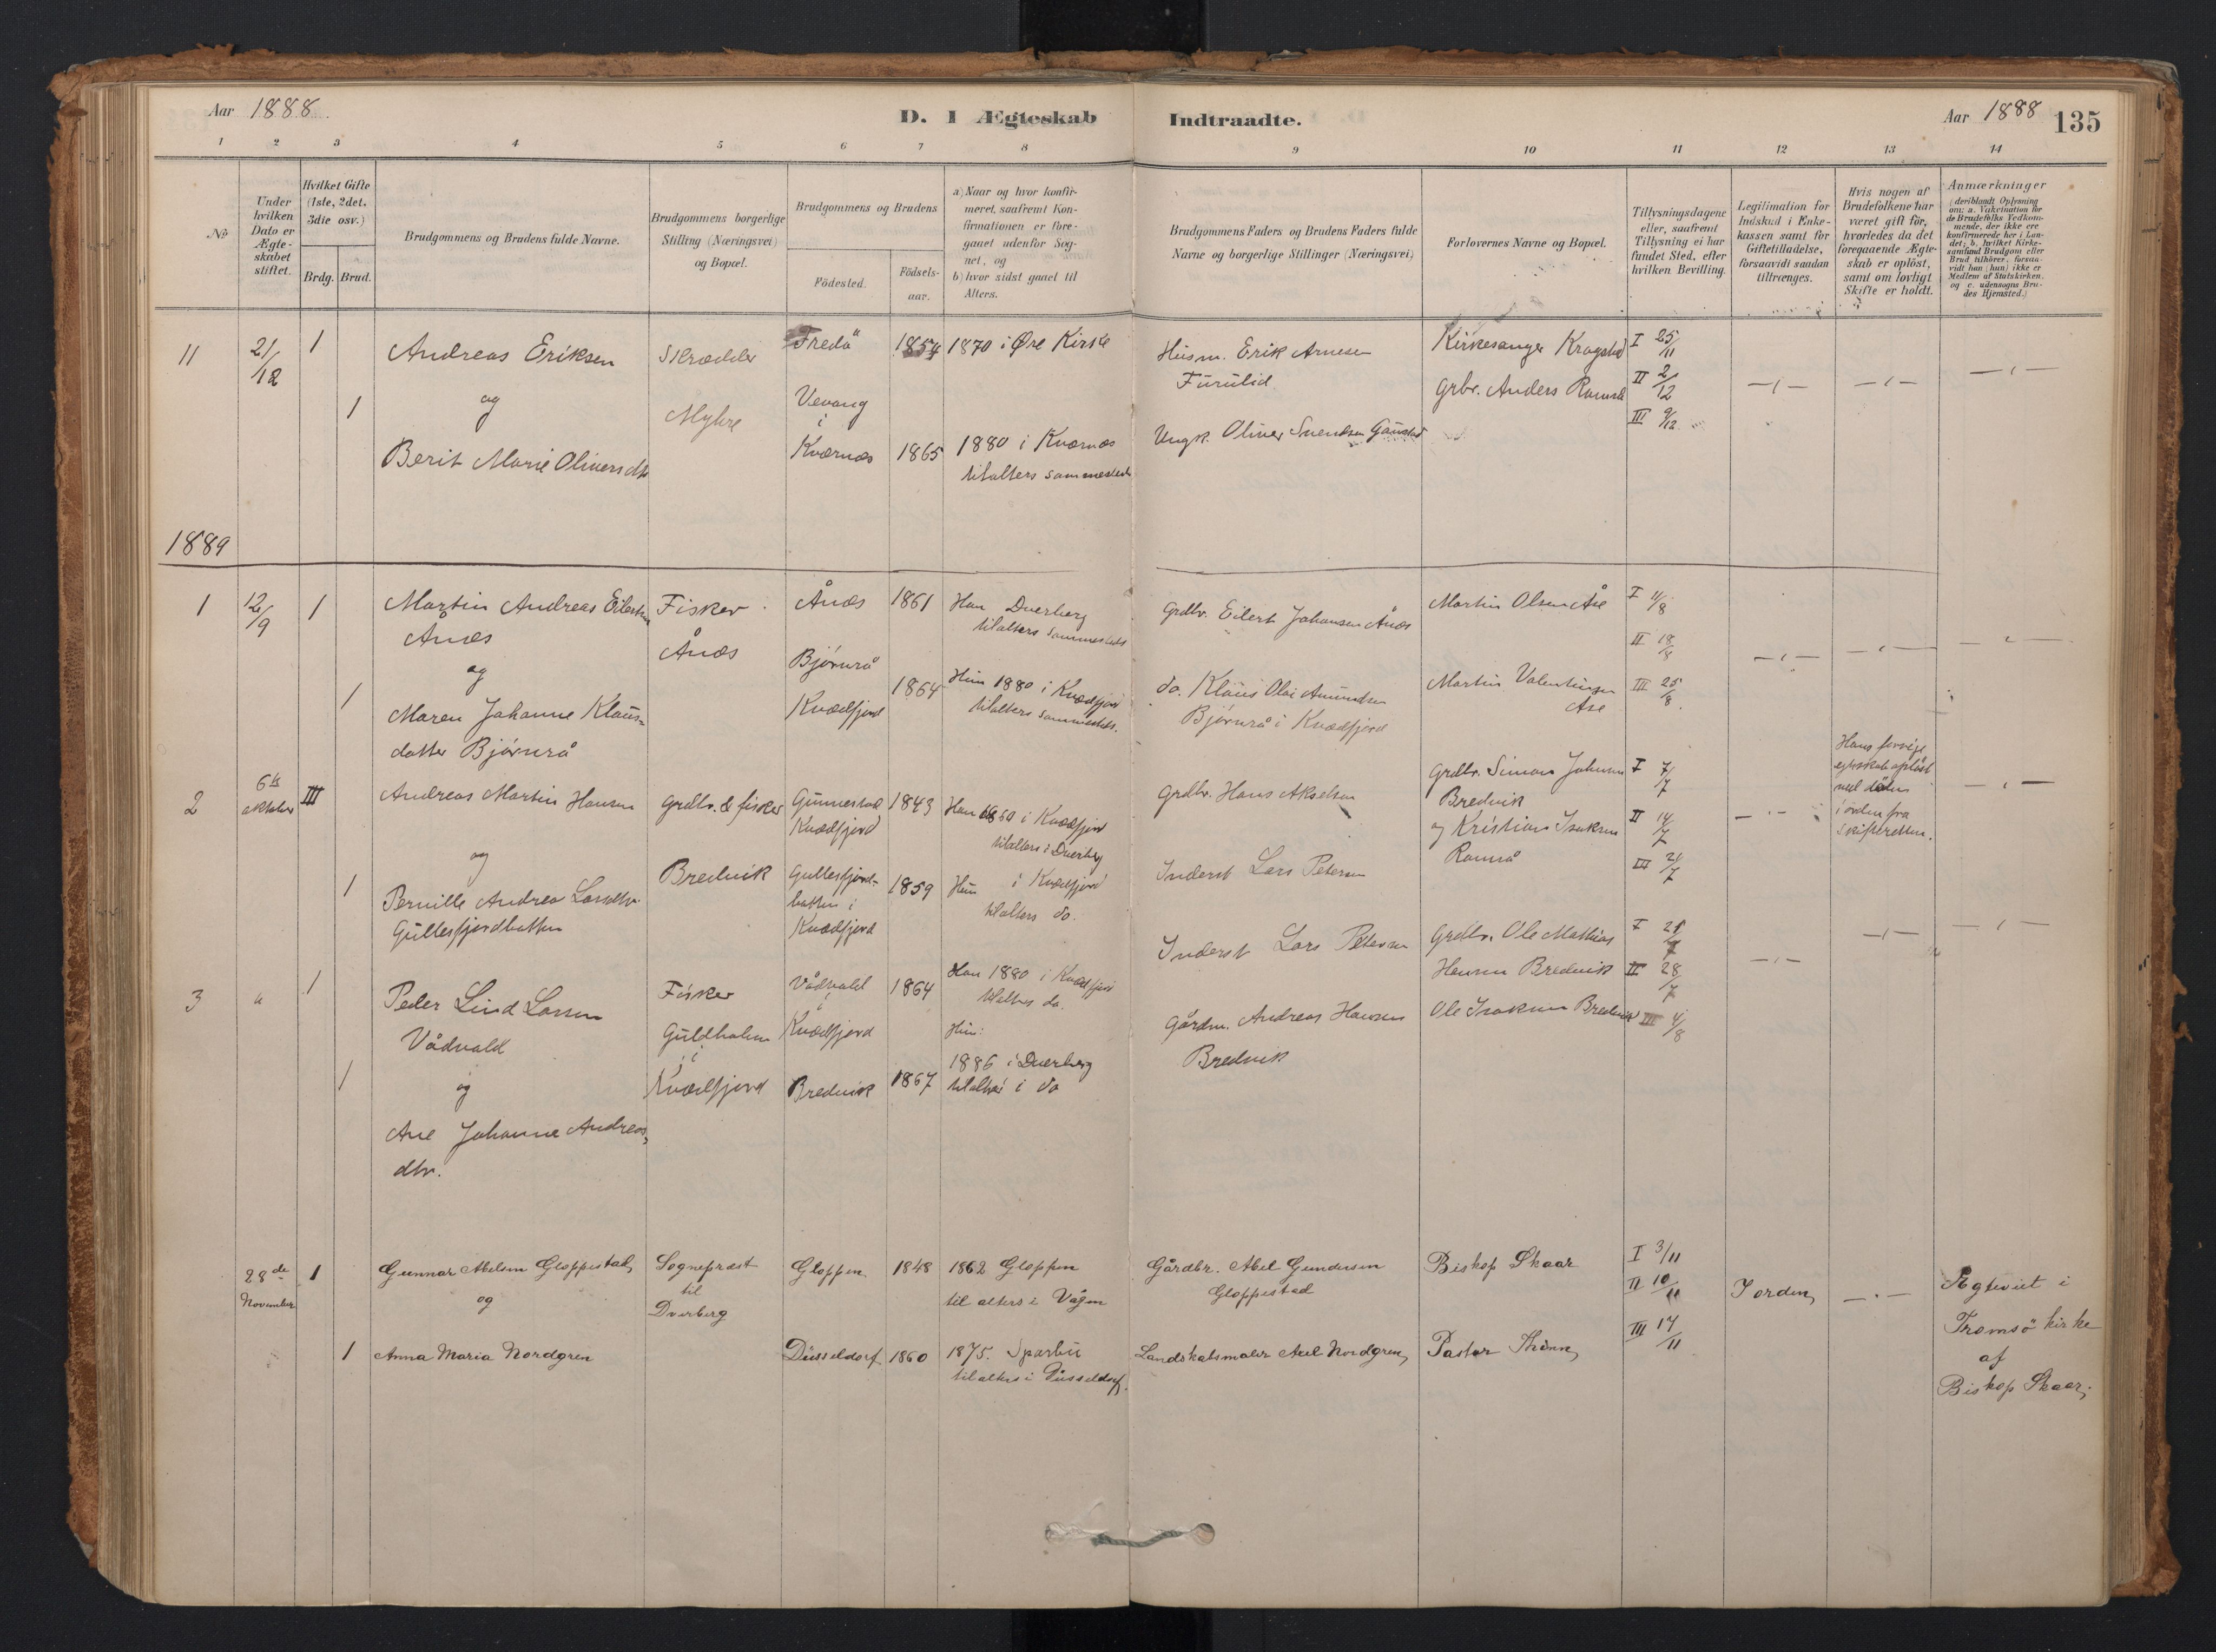 Aar 1888
D. I Ægteskab Indtraadte.
Aar 1888
135
1 2 3 4 5 6 7 8 9 10 11 12 13 14
No
Under hvilken Dato er Ægteskabet stiftet.
Hvilket Gifte (1ste, 2det, 3die osv.)
Brdg. Brud.
Brudgommens og Brudens fulde Navne.
Brudgommens borgerlige Stilling (Næringsvei) og Bopæl.
Brudgommens og Brudens
Födested.
Födselsaar.
a) Naar og hvor konfirmeret, saafremt Konfirmationen er foregaaet udenfor Sognet, og
b) hvor sidst gaaet til Alters.
Brudgommens Faders og Brudens Faders fulde Navne og borgerlige Stillinger (Næringsvei)
Forlovernes Navne og Bopæl.
Tillysningsdagene eller, saafremt Tillysning ei har fundet Sted, efter hvilken Bevilling.
Legitimation for Indskud i Enkekassen samt for Giftetilladelse, forsaavidt saadan tiltrænges.
Hvis nogen af Brudefolkene har været gift för, hvorledes da det foregaaende Ægteskab er oplöst, samt om lovligt Skifte er holdt.
Anmærkninger (deriblandt Oplysning om: a. Vakcination for de Brudefolks Vedkommende, der ikke ere konfirmerede her i Landet; b. hvilket Kirkesamfund Brudgom eller Brud tilhörer, forsaavidt han (hun) ikke er Medlem af Statskirken. og c. udensogns Brudes Hjemsted.)
11 21/12 1 Andreas Eriksen Skrædder Fredö 1854 1870 i Øre Kirke Husm. Erik Arnesen Furulid Kirkesanger Kragstad I 25/11
og Myhre Grbr. Anders Ramsli II 2/12
1 Berit Marie Oliversdtr Vevang i Kværnæs 1865 1880 i Kværnæs tilalters sammesteds Ungk. Oliver Svendsen Gaustad III 9/12
1889
1 12/9 1 Martin Andreas Eilertsen Ånæs Fisker Ånæs Ånæs 1861 Han Dverberg tilalters sammesteds Grdbr. Eilert Johansen Ånæs Martin Olsen Åse I 11/8
og II 18/8
1 Maren Johanne Klausdatter Bjørnrå Bjørnrå Kvædfjord 1864 Hun 1880 i Kvædfjord tilalters sammesteds. do. Klaus Olai Amundsen Bjørnrå i Kvædfjord Martin Valentinsen Åse III 25/8
2 6te oktober III Andreas Martin Hansen Grdbr. & fisker Gunnestad Kvædfjord 1843 Han 1860 i Kvædfjord tilalters i Dverberg Grdbr. Hans Akselsen Grdbr. Simon Johnsen Bredvik I 7/7 Hans forrige egteskab opløst ved døden i orden fra Skifteretten.
og Bredvik og Kristian Isaksen Ramså II 14/7
1 Pernille Andrea Larsdtr Gullesfjordbotten Gullesfjordbotten i Kvædfjord 1859 Hun i Kvædfjord tilalters do. Inderst Lars Petersen III 21/7
3 " 1 Peder Lind Larsen Vådvald Fisker Guldholm i Kvædfjord Vådvald i Kvædfjord 1864 Han 1880 i Kvædfjord tilalters do. Inderst Lars Petersen Grdbr. Ole Mathias Hansen Bredvik I 21/7
og II 28/7
1 Ane Johanne Andreasdtr. Bredvik 1867 Hun: 1886 i Dverberg tilalters i do Gårdm. Andreas Hansen Bredvik Ole Isaksen Bredvik III 4/8
28de November 1 Gunnar Abelsen Gloppestad, Sognepræst til Dverberg Gloppen. 1848 1862 Gloppen til alters i Vågen Gårdbr. Abel Gundersen Gloppestad Biskop Skaar I 3/11
og II 10/11 I orden, Ægteviet i Tromsö kirke af Biskop Skaar.
1 Anna Maria Nordgren Düsseldorf 1860 1875. Sparbu til alters i Düsseldorf. Landskabsmaler Axel Nordgren, Pastor III 17/11